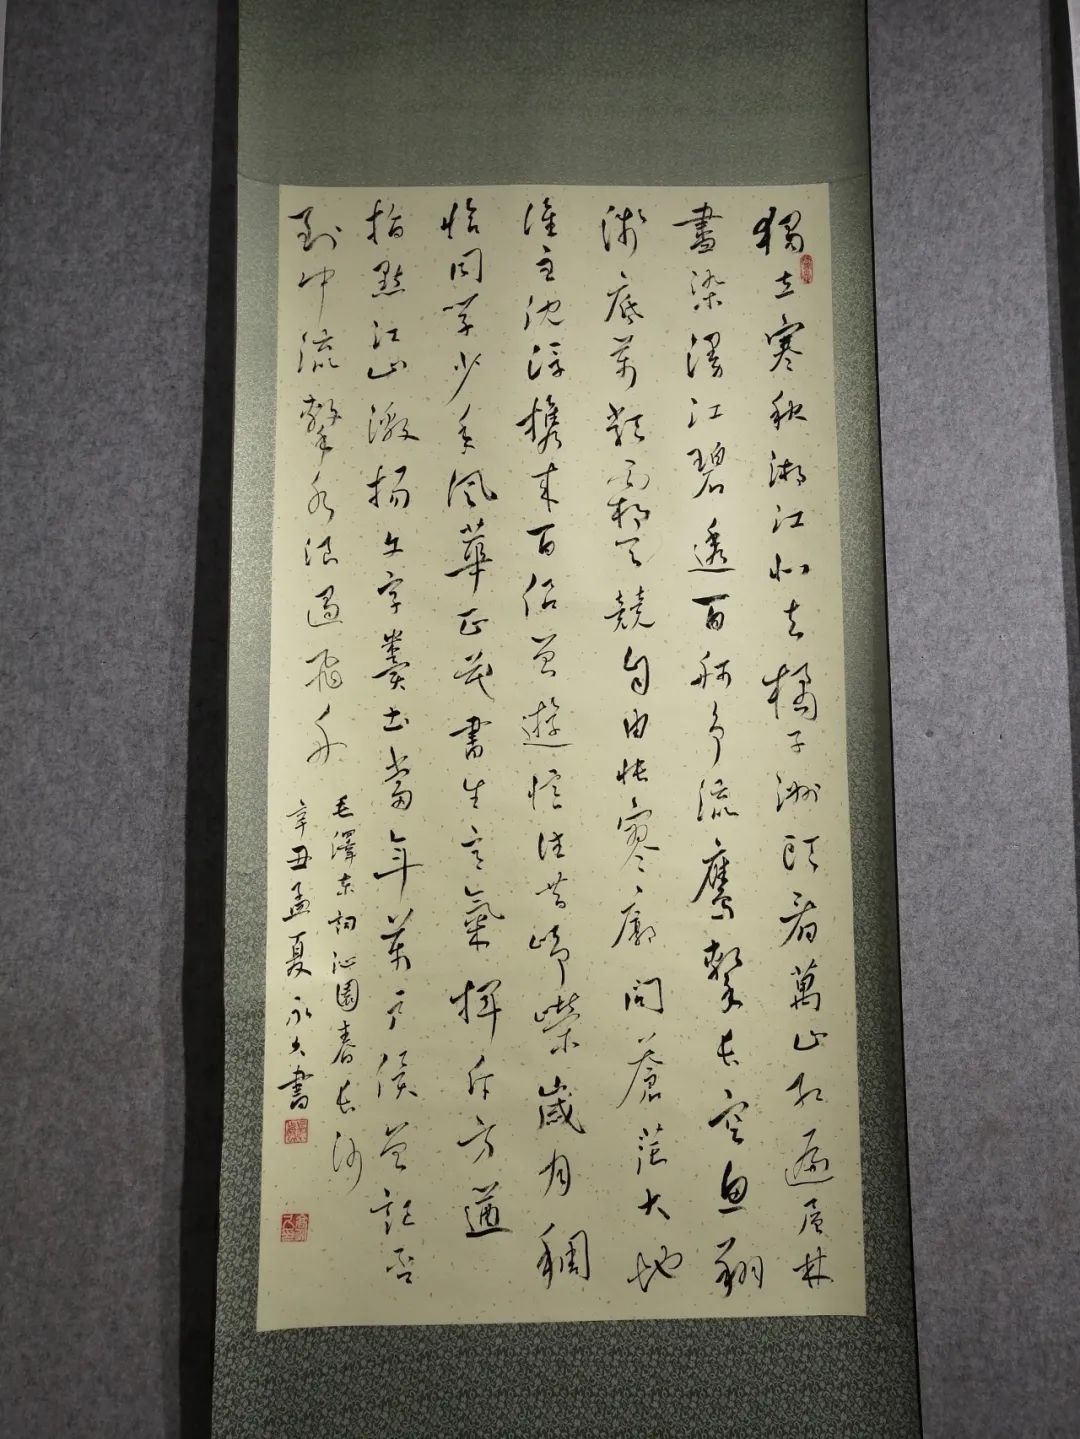 獨立寒秋湘江北去橘子洲頭看萬山紅遍層林
盡染漫江碧透百舸爭流鷹擊長空魚翔
淺底萬類霜天競自由悵寥廓問蒼茫大地
誰主沈浮攜來百侶曾遊憶往昔崢嶸歲月稠
恰同學少年風華正茂書生意氣揮斥方遒
指點江山激揚文字糞土當年萬戶侯曾記否
到中流擊水浪遏飛舟
毛澤東詞沁園春長沙
辛丑孟夏永書